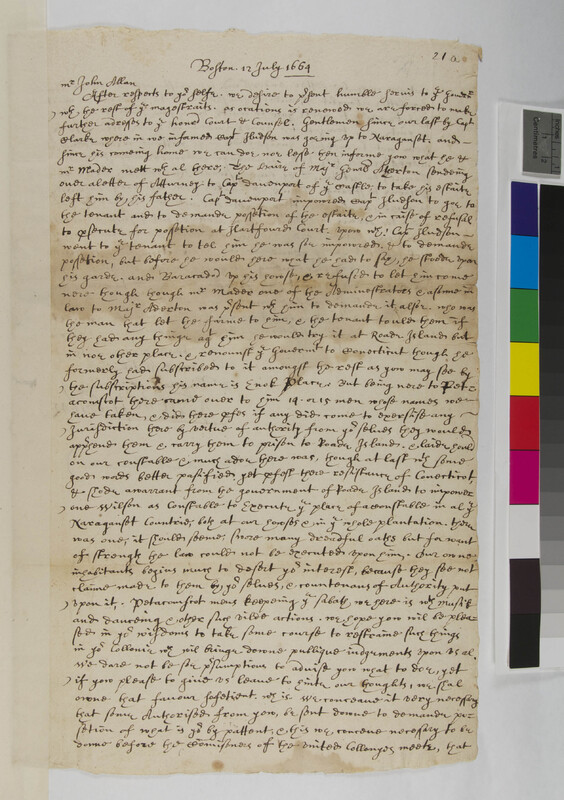 21a
Boston 12 July 1664
mr John Allan
After respects to yr selfe, we desire to psent humble servis to yr Governr
wth the rest of yr magestraits. as occations is renewed we are forced to make
further adress to yr honrd Court & Counsel. Gentlemen since our last by Capt
Clarke where in we infamed Capt Hudson was going up to Naraganset. and
since his comeing home we can doe nor lesse then informe you what he &
mr Mader mett wth al here, The heires of Majr Honrd Aderton sending
over a letter of Atturney to Capt Davenport of ye Castle, to take his estaite
left him by his father. Capt Davenport impowred Capt Hudson to goe to
the tenant and to demande posetion of the estaite, & in case of refusil
to psecute for posetion at Hartford Court. upon wch Capt Hudson
went to ye tenant to tel him he was soe impowred, & to demande
posetion, but before he would here what he had to say, he stoode upon
his garde. and Baracaded up his house, & refused to let him come
nere though though mr Mader one of the Administrators & asume in
law to Majr Aderton was psent wth him to demande it alsoe. who was
the man that let the farme to him, & the tenant tould them if
they had any thinge agt him he would try it at Roade Island but
in noe other place. & renounst ye Goverment of Conecticut though he
formerly had subscribed to it amongst the rest as you may see by
the subscriptions his name is Enok Place. But being nere to Peta
acomscot there came over to him 14 or 15 men whose names we
have taken, & did there pfes if any did come to exersise any
Jurisdiction here by vertue of authority from yr selves they would
apphend them & carry them to prison to Roade Island. & laide hould
on our constable & much adoe here was, though at last wth some
good words better pasified, yet pfest there resistance of Conecticot
& shode a warrant from the goverment of Roade Island to impower
one Wilson as constable to execute ye place of a constable in al ye
Naraganset Countrie, both at our howses & in ye whole plantation. there
was one, it should seeme, swore many dreadful oaths but for want
of strength the law could not be executed upon him. Our owne
inhabitants begins much to desert yr interest, because they see not
claime made to them by yr selves, & countenans of Authority put
upon it. Petacomscot mens keepeing ye sabath we here is wth Musik
and dancing & other such vilde actions. we hope you wil be plea-
sed in yr wisdoms to take some course to restraine such things
in yr Collonie wch wil bringe downe publique judgements upon us al.
We dare not be soe psumptious to advise you what to doe, yet
if you please to give us leave to hinte our thoughts, we shal
owne that favour sufetient. wch is we conceave it very necesary
that some Authorised from you, be sent downe to demande po-
setion of what is yrs by pattent, & this we conceve necesary to be
done before the Comisners of the united Collonyes meete, that